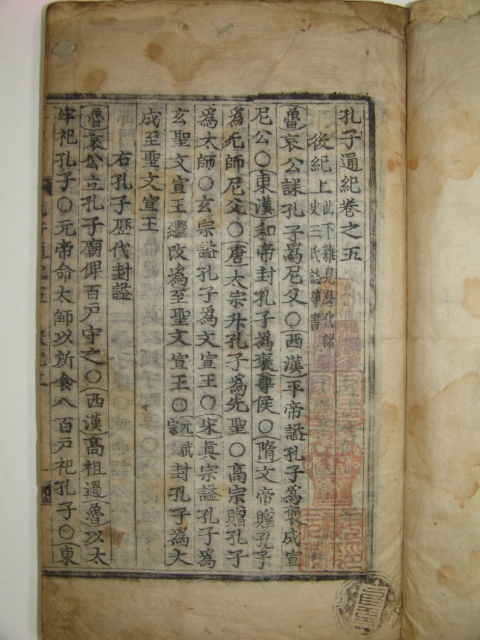 孔子通紀卷之五
後紀上 此下雜見歷代諸史三氏誌等書
魯哀公誄孔子爲尼父○西漢平帝謚孔子爲褒成宣
尼公○東漢和帝封孔子爲褒尊侯○隋文帝贈孔子
爲先師尼父○唐太宗升孔子爲先聖○高宗贈孔子
爲太師○玄宗謚孔子爲文宣王○宋眞宗謚孔子爲
玄聖文宣王繼改爲至聖文宣王○元武宗封孔子爲大
成至聖文宣王
右孔子歷代封謚
魯哀公立孔子廟俾百戶守之○西漢高祖過魯以太
牢祀孔子○元帝命太師以所食八百戶祀孔子○東